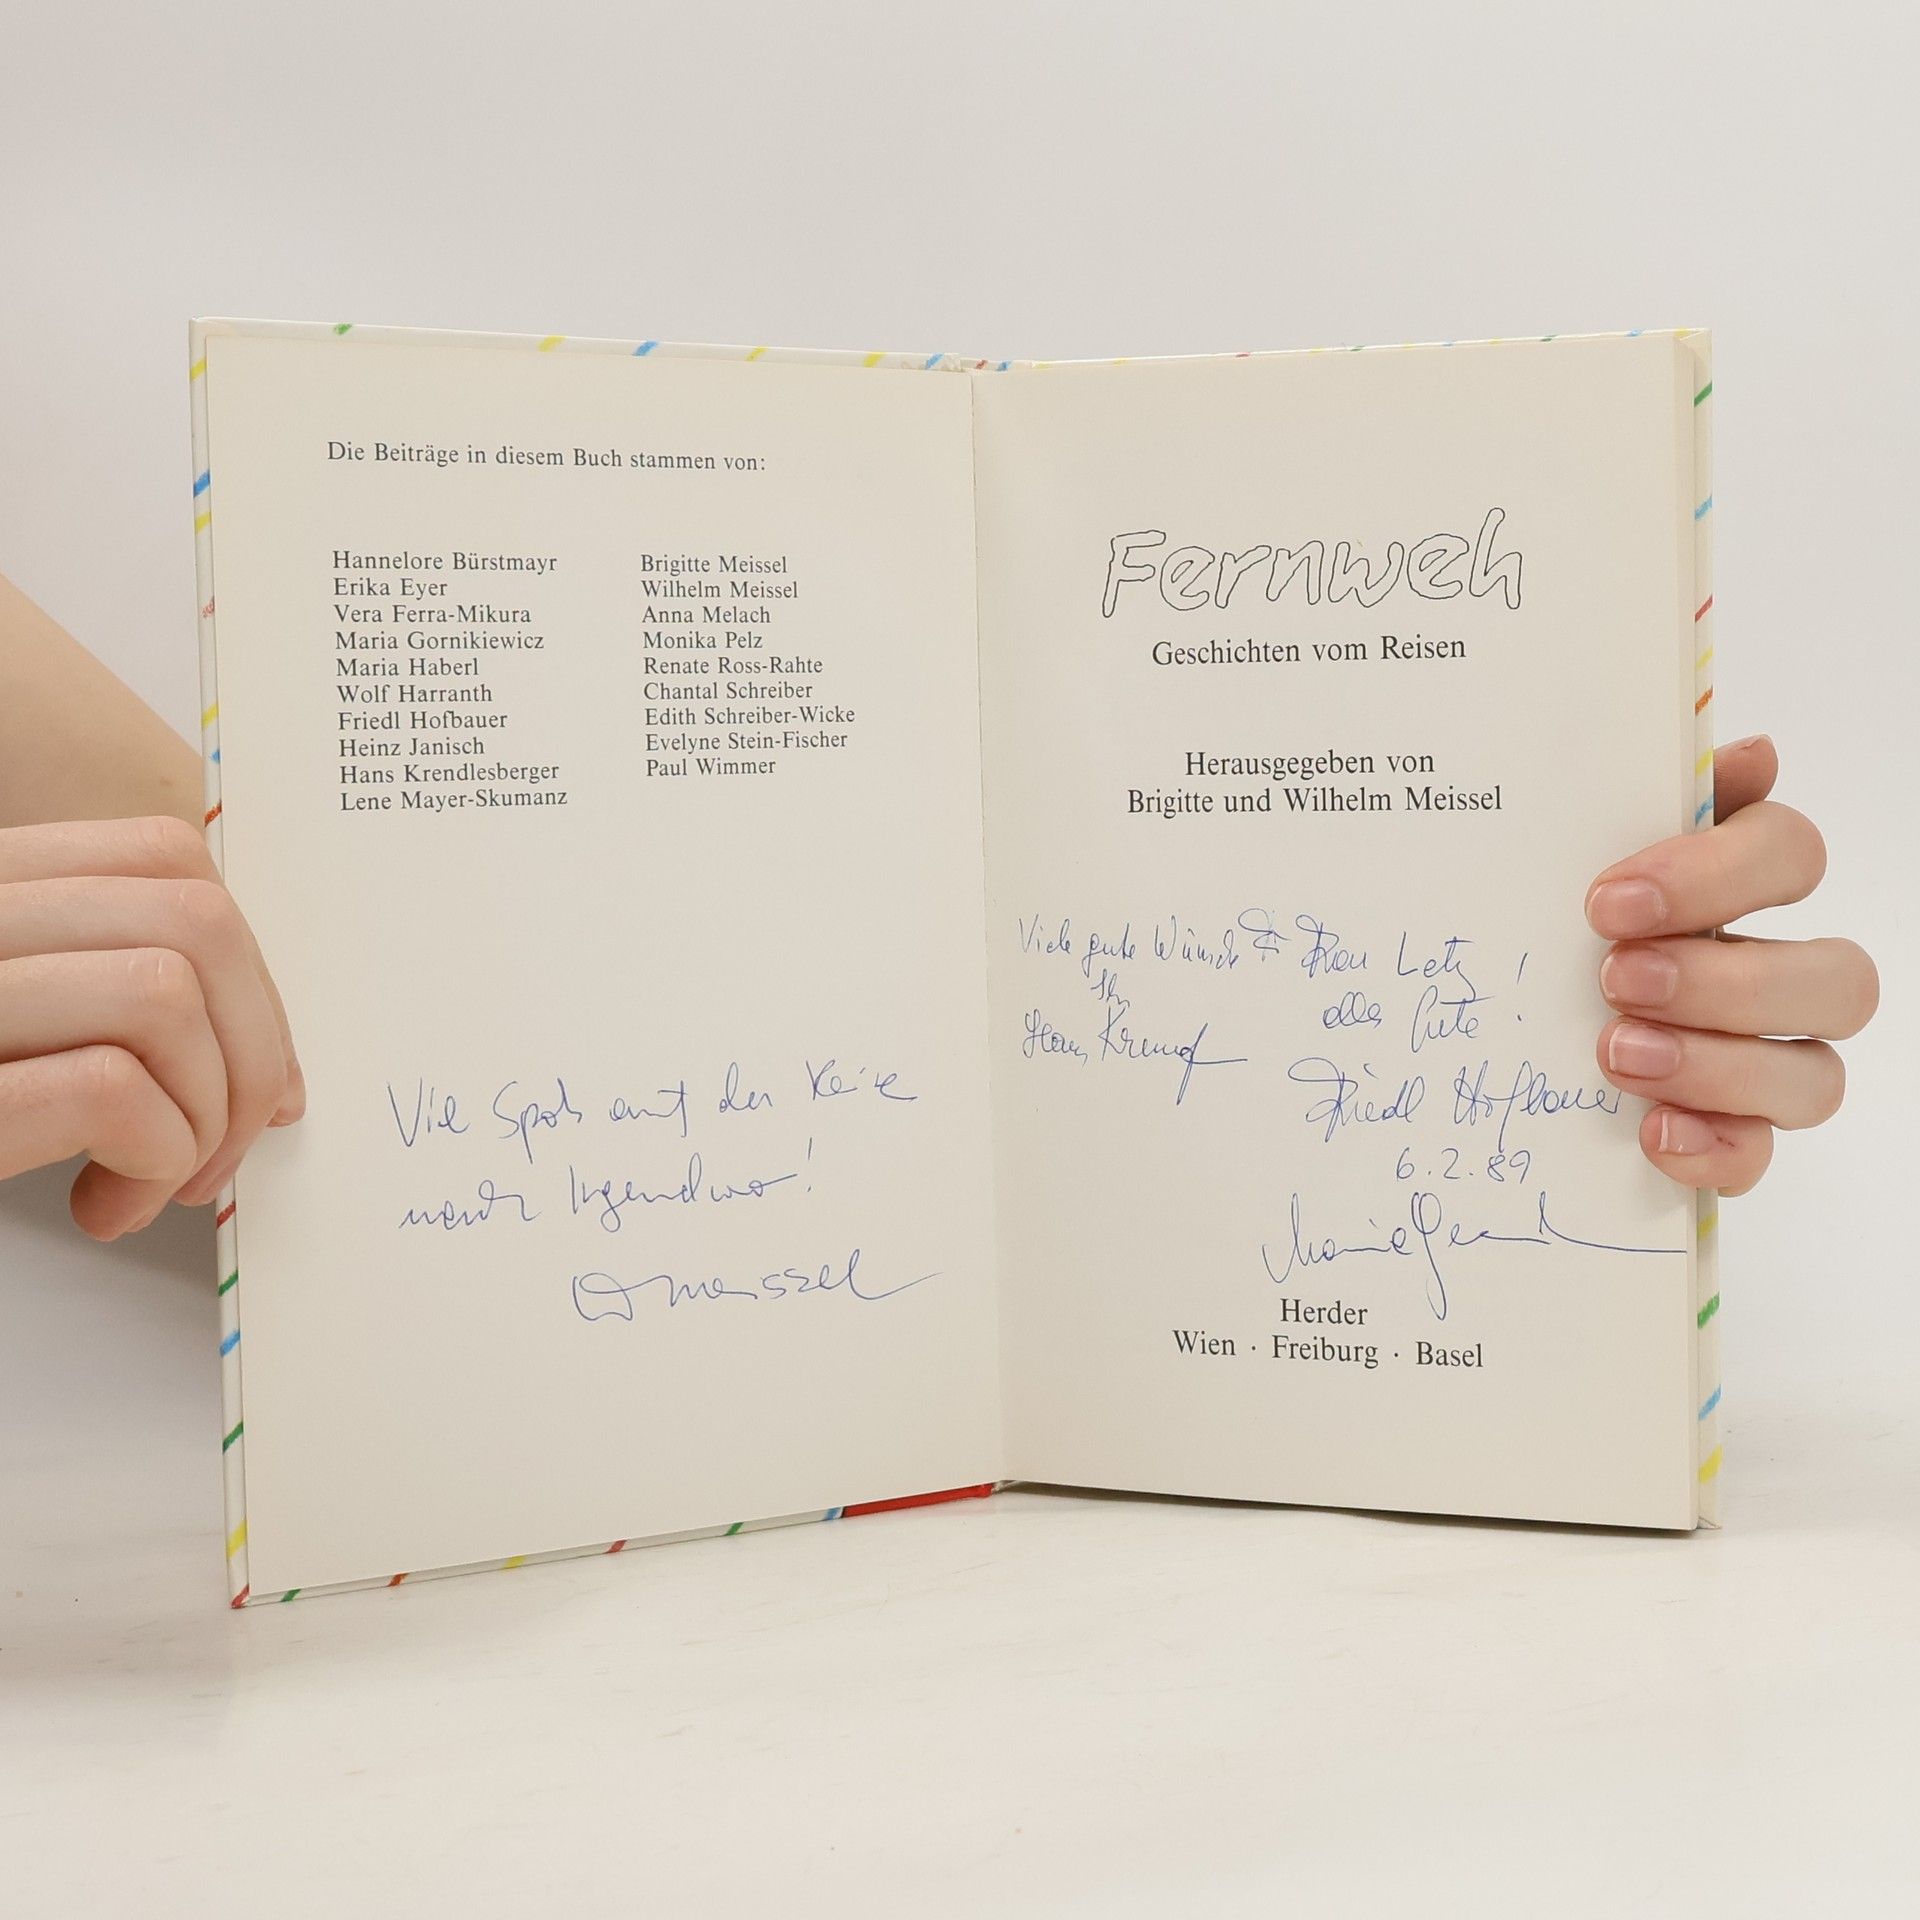 Die Beiträge in diesem Buch stammen von:
Hannelore Bürstmayr
Erika Eyer
Vera Ferra-Mikura
Maria Gornikiewicz
Maria Haberl
Wolf Harranth
Friedl Hofbauer
Heinz Janisch
Hans Krendlesberger
Lene Mayer-Skumanz
Brigitte Meissel
Wilhelm Meissel
Anna Melach
Monika Pelz
Renate Ross-Rahte
Chantal Schreiber
Edith Schreiber-Wicke
Evelyne Stein-Fischer
Paul Wimmer
Viel Spaß auf der Reise
nach Irgendwo!
W Meissel
Fernweh
Geschichten vom Reisen
Herausgegeben von
Brigitte und Wilhelm Meissel
Viele gute Wünsche
Ihr
Hans
Frau Letz!
alles Gute!
Friedl Hofbauer
6.2.89
Maria
Herder
Wien · Freiburg · Basel